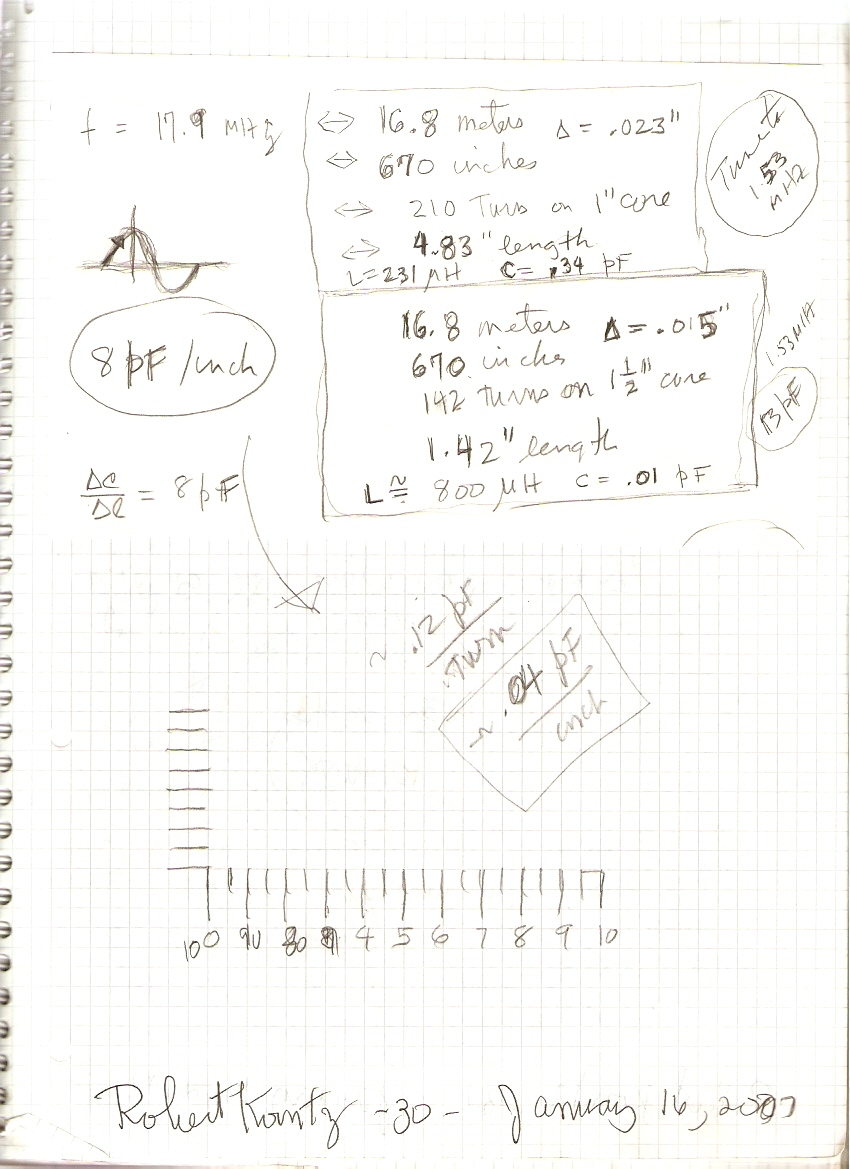 f = 17.9 MHz
⇔ 16.8 meters Δ = .023"
⇔ 670 inches
⇔ 210 Turns on 1" core
⇔ 4.83" length
L = 231 μH C = .34 pF
Tune to
1.53
MHz
16.8 meters Δ = .015"
670 inches
142 turns on 1 1/2" core
1.42" length
L ≅ 800 μH C = .01 pF
1.53 MHz
13 pF
8 pF/inch
ΔC/Δl = 8 pF
~ .12 pF/Turn
~ .04 pF/inch
100 4 5 6 7 8 9 10
Robert Kountz - 30 - January 16, 2007